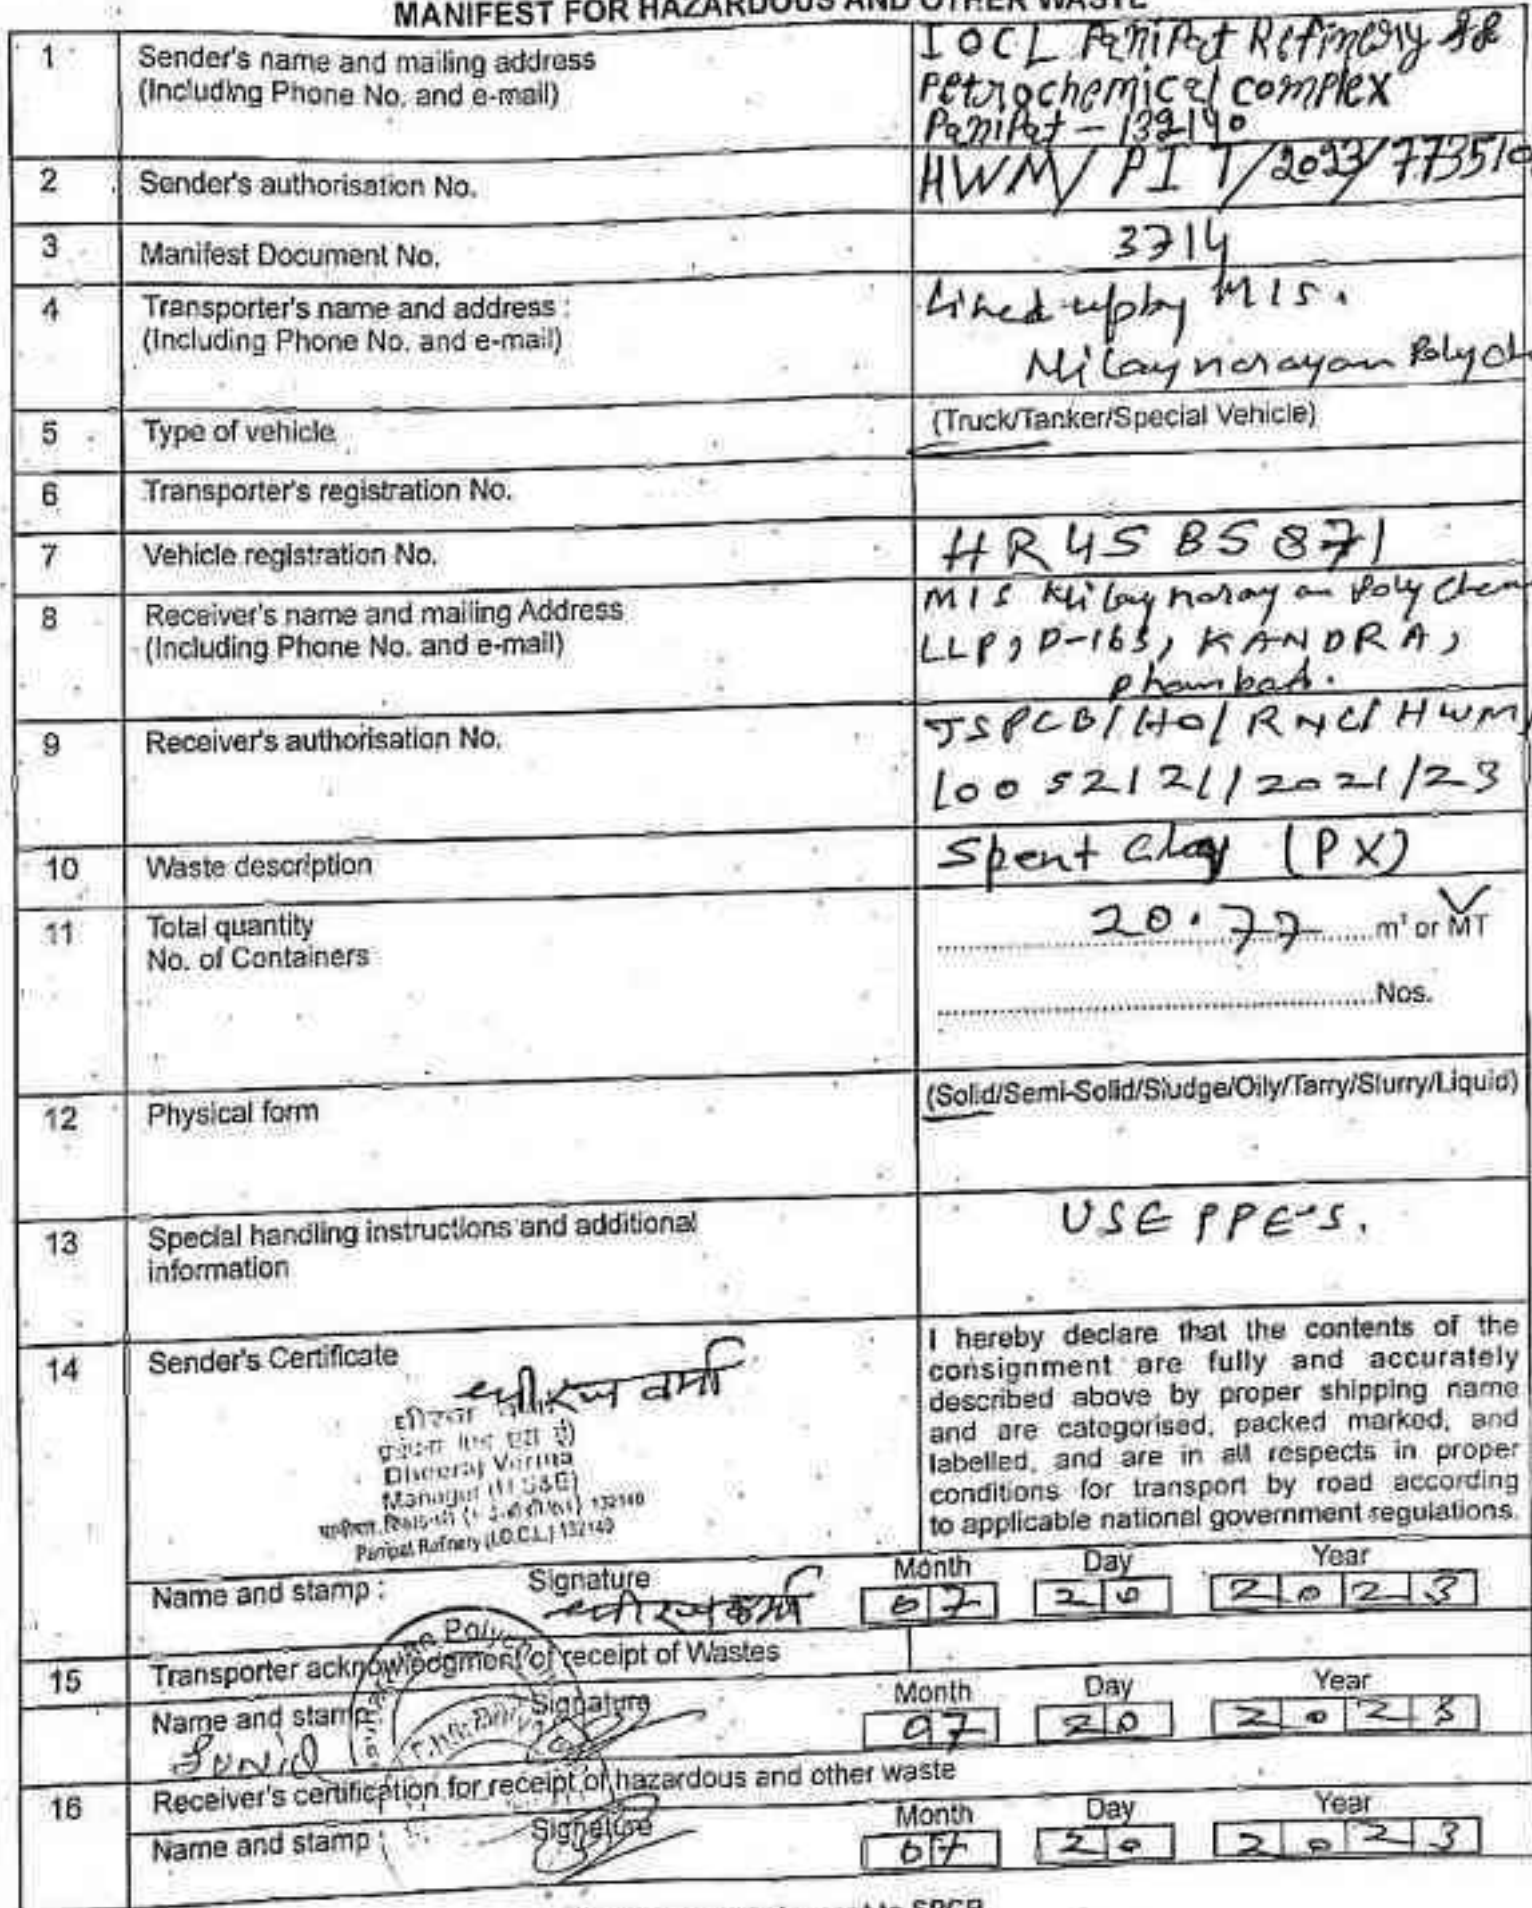 MANIFEST FOR HAZARDOUS AND OTHER WASTE
1 Sender's name and mailing address
(Including Phone No. and e-mail)
IOCL Panipat Refinery &
Petrochemical complex
Panipat - 132140
2 Sender's authorisation No.
HWM/PIT/2023/773510
3 Manifest Document No.
3714
4 Transporter's name and address :
(Including Phone No. and e-mail)
Lined-up by M/S.
Nilaynarayan Polych
5 Type of vehicle
(Truck/Tanker/Special Vehicle)
6 Transporter's registration No.
7 Vehicle registration No.
HR45B5871
8 Receiver's name and mailing Address
(Including Phone No. and e-mail)
M/S Nilaynarayan Poly Chem
LLP, D-165, KANDRA,
Dhanbad.
9 Receiver's authorisation No.
JSPCB/HO/RNC/HWM/
10052121/2021/23
10 Waste description
Spent Clay (PX)
11 Total quantity
No. of Containers
20.77 m³ or MT
Nos.
12 Physical form
(Solid/Semi-Solid/Sludge/Oily/Tarry/Slurry/Liquid)
13 Special handling instructions and additional
information
USE PPE's.
14 Sender's Certificate
धीरज वर्मा
Dheeraj Verma
Manager (HS&E)
132140
Panipat Refinery (I.O.C.L.) 132140
I hereby declare that the contents of the
consignment are fully and accurately
described above by proper shipping name
and are categorised, packed marked, and
labelled, and are in all respects in proper
conditions for transport by road according
to applicable national government regulations.
Name and stamp : Signature Month Day Year
धीरज वर्मा 07 20 2023
15 Transporter acknowledgment of receipt of Wastes
Name and stamp Signature Month Day Year
07 20 2023
16 Receiver's certification for receipt of hazardous and other waste
Name and stamp : Signature Month Day Year
07 20 2023